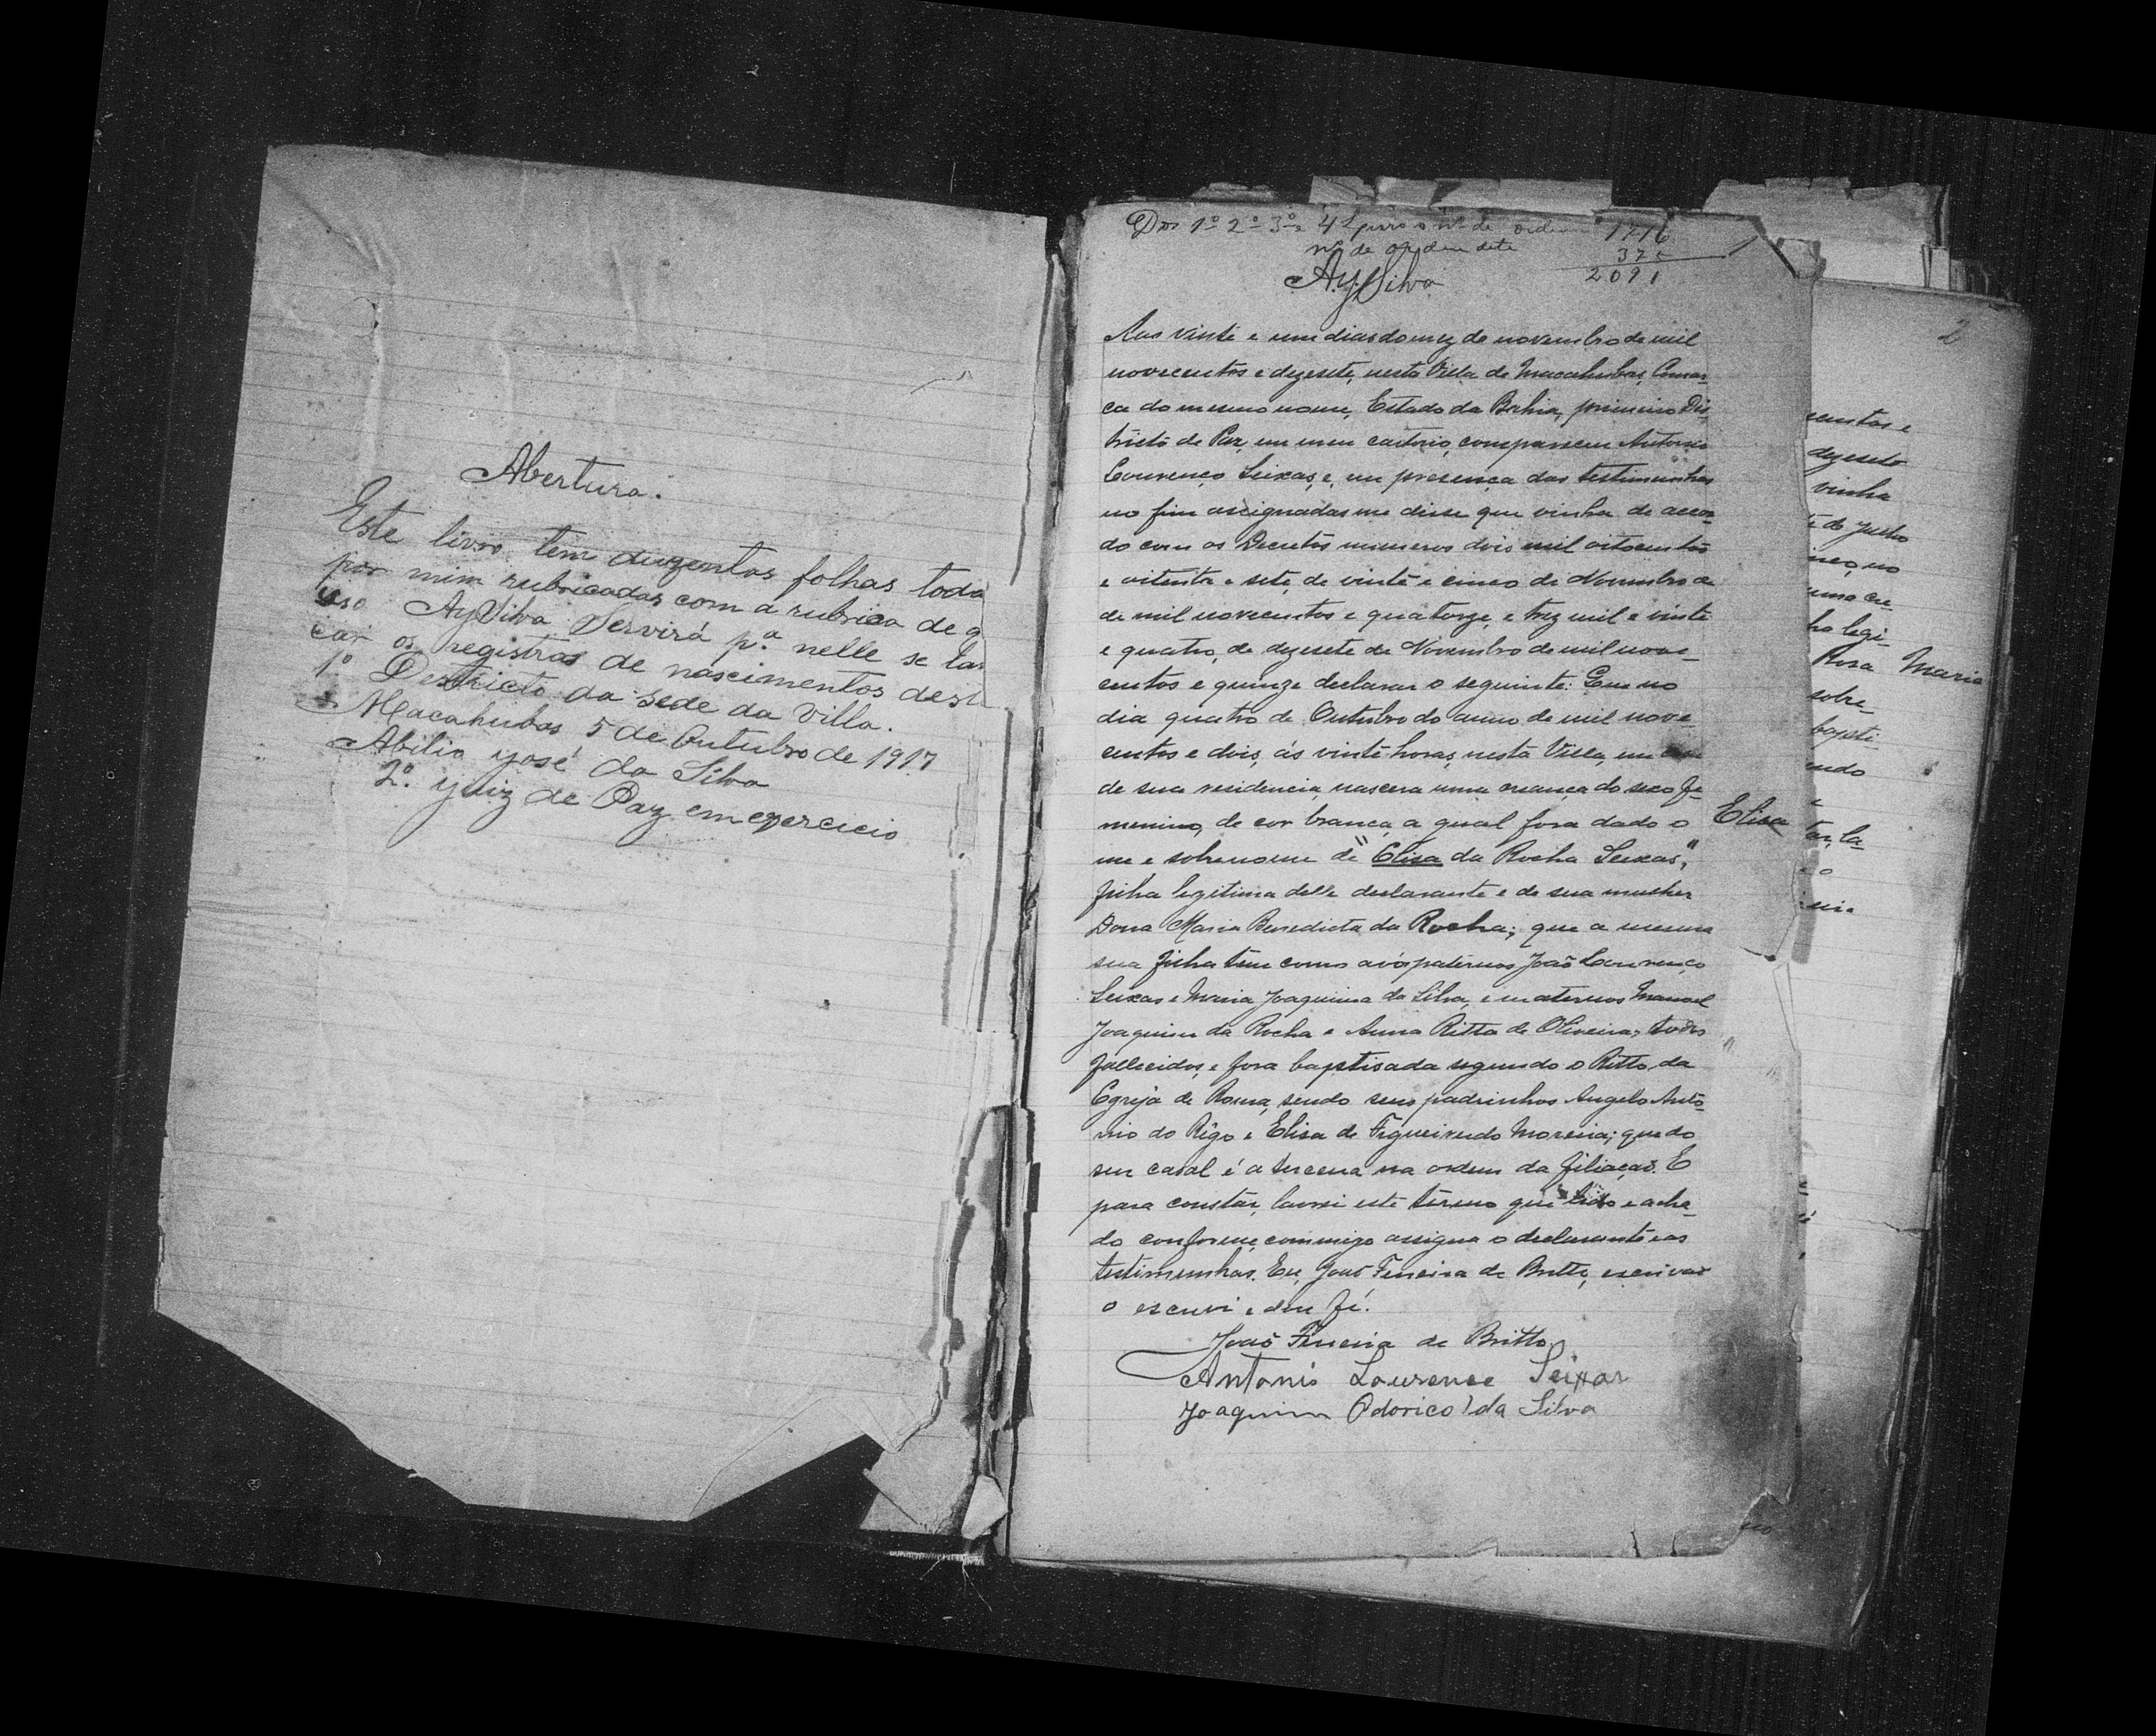 Abertura.
Este livro tem duzentas folhas toda
por mim rubricadas com a rubrica de q
uso AySilva Servirá p.ª nelle se lan
car os registros de nascimentos dest
1º Destricto da Sede da Villa.
Macahubas 5 de Outubro de 1917
Abilio José da Silva
2º Juiz de Paz em exercicio
Dos 1º 2º 3º e 4º livro o nº de ordem 1716
nº de ordem dete 375
2091
AySilva
1
Aos vinte e um dias do mez de novembro de mil
novecentos e dezesete, nesta Villa de Macahubas, Comar-
ca do mesmo nome, Estado da Bahia, primeiro Dis-
tricto de Paz, em meu cartorio, compareceu Antonio
Lourenço Seixas, e, em presença das testemunhas
no fim assignadas me disse que vinha de accor-
do com os Decretos numeros dois mil oitocentos
e oitenta e sete, de vinte e cinco de Novembro de
de mil novecentos e quatorze, e trez mil e vinte
e quatro, de dezesete de Novembro de mil nove-
centos e quinze declarar o seguinte: Que no
dia quatro de Outubro do anno de mil nove-
centos e dois, ás vinte horas, nesta Villa, em casa
de sua residencia, nascera uma creança do sexo fe-
menino, de cor branca, a qual fora dado o
me e sobrenome de "Elisa da Rocha Seixas",
Elisa
filha legitima delle declarante e de sua mulher
Dona Maria Benedicta da Rocha; que a mesma
sua filha tem como avós paternos João Lourenço
Seixas e Maria Joaquina da Silva, e maternos Manoel
Joaquim da Rocha e Anna Ritta de Oliveira, todos
fallecidos, e fora baptisada segundo o Ritto da
Egreja de Roma, sendo seus padrinhos Angelo Anto-
nio do Rêgo e Elisa de Figueiredo Moreira; que do
seu casal é a terceira na ordem da filiação. E
para constar, lavrei este termo que lido e acha-
do conforme, commigo assigna o declarante e as
testimunhas. Eu, João Ferreira de Britto, escrivão
o escrevi e dou fé.
João Ferreira de Britto
Antonio Lourenço Seixas
Joaquim Odorico da Silva
2
centos e
dezesete
vinha
de Julho
no
uma cre-
legi-
Rosa Maria
sobre-
bapti-
endo
e
la-
o